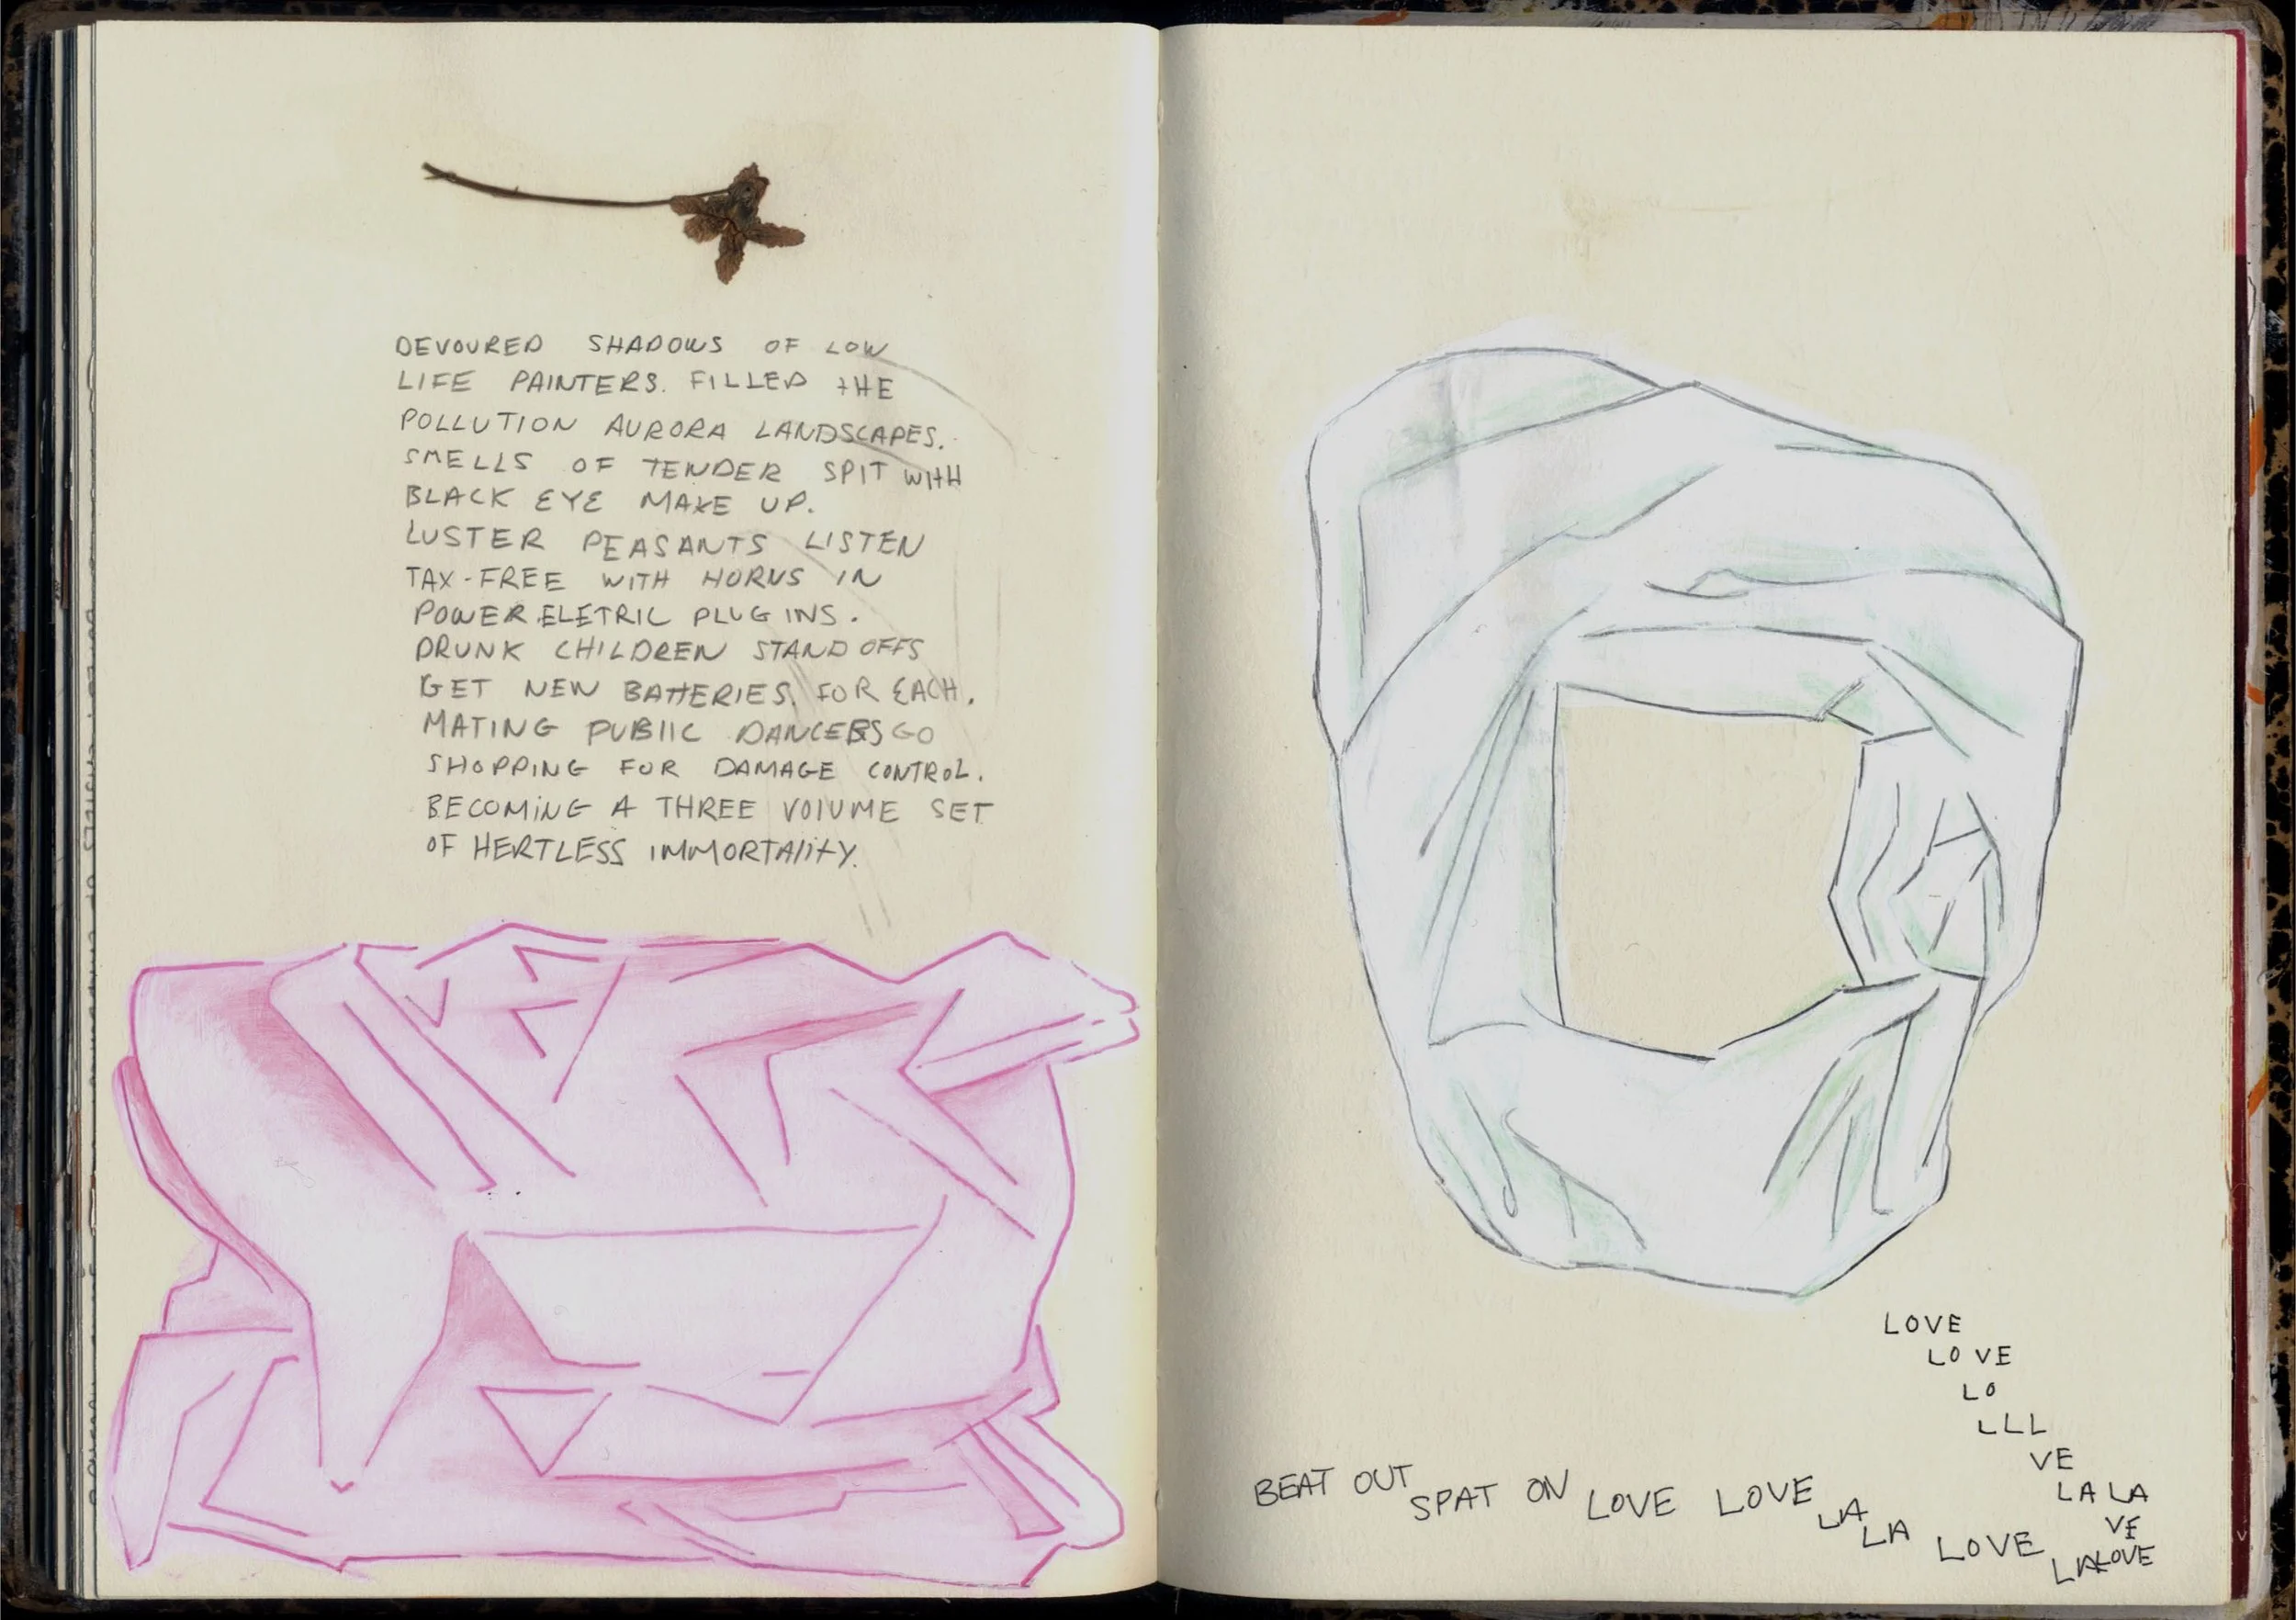 DEVOURED SHADOWS OF LOW
LIFE PAINTERS. FILLED THE
POLLUTION AURORA LANDSCAPES.
SMELLS OF TENDER SPIT WITH
BLACK EYE MAKE UP.
LUSTER PEASANTS LISTEN
TAX-FREE WITH HORNS IN
POWER ELETRIC PLUG INS.
DRUNK CHILDREN STAND OFFS
GET NEW BATTERIES. FOR EACH.
MATING PUBLIC DANCERS GO
SHOPPING FOR DAMAGE CONTROL.
BECOMING A THREE VOLUME SET
OF HERTLESS IMMORTALITY.
LOVE
LO VE
LO
LLL
VE
LA LA
VE
LOVE
BEAT OUT SPAT ON LOVE LOVE LA LA LOVE LA